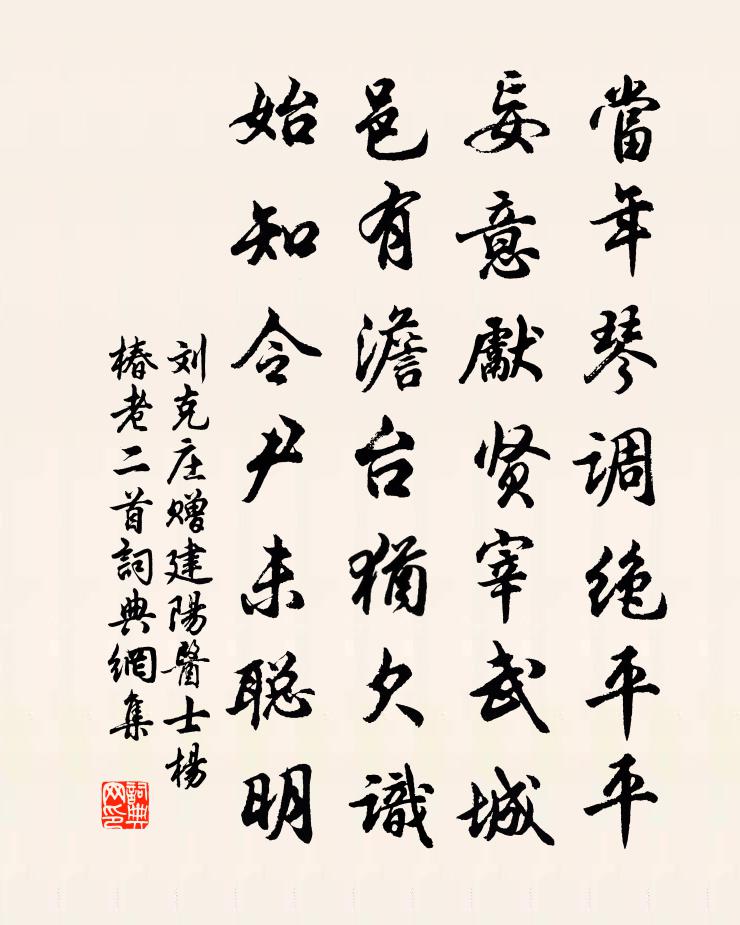 當年琴调绝平平
妄意獻贤宰武城
邑有澹台猶欠識
始知令尹未聪明
刘克庄赠建陽醫士楊
椿老二首詞典網集
詞典网印